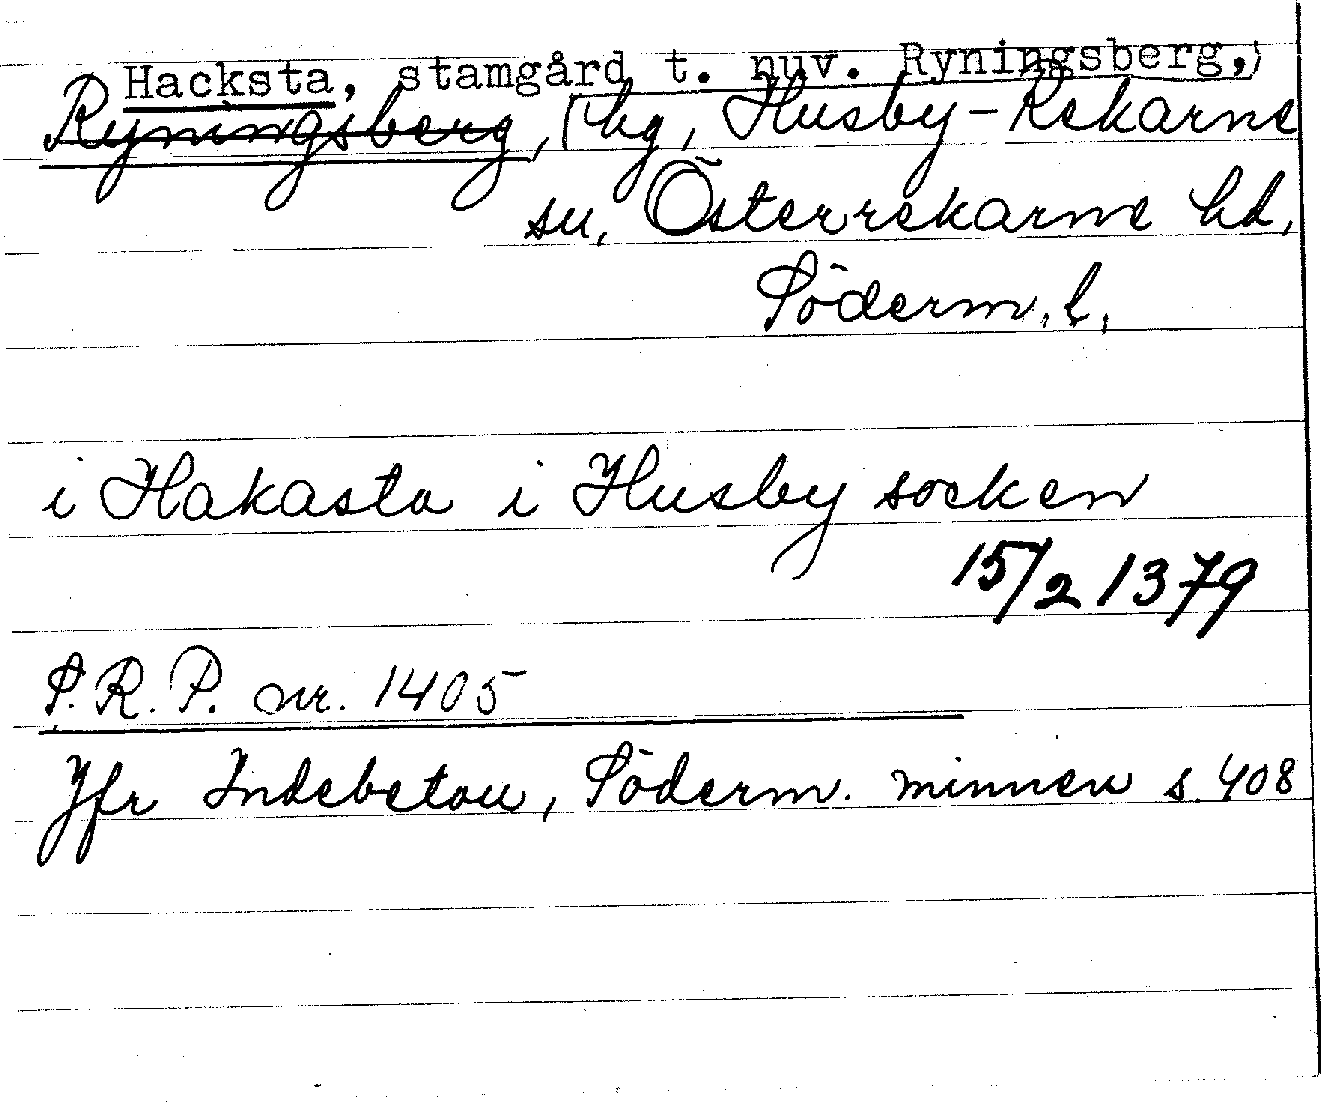 Hacksta, stamgård t. nuv. Ryningsberg,
Ryningsberg, hg, Husby-Rekarne
sn, Österrekarne hd,
Söderm. l.
i Hakasta i Husby socken
15/2 1379
S.R.P. nr. 1405
Jfr Indebetou, Söderm. minnen s. 408